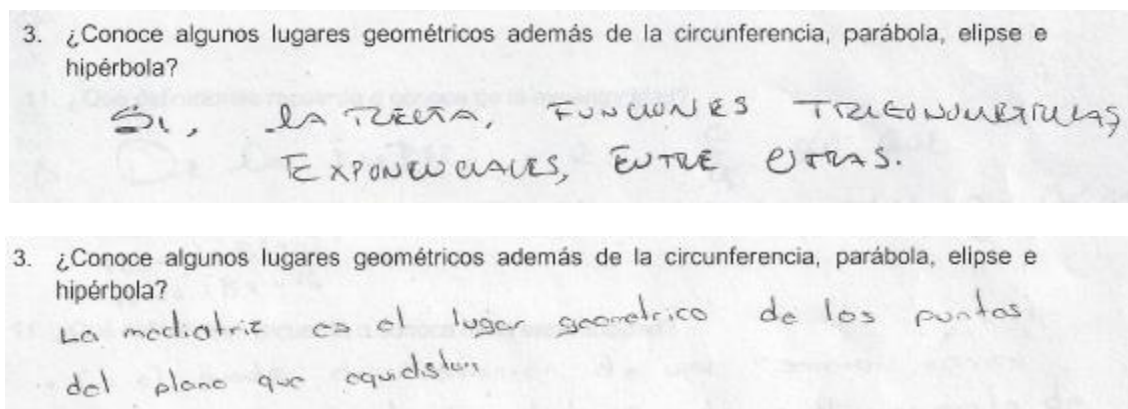 3. ¿Conoce algunos lugares geométricos además de la circunferencia, parábola, elipse e
hipérbola?
Si, la recta, FUNCIONES TRIGONOMETRICAS,
EXPONENCIALES, ENTRE OTRAS.
3. ¿Conoce algunos lugares geométricos además de la circunferencia, parábola, elipse e
hipérbola?
La mediatriz es el lugar geometrico de los puntos
del plano que equidistan